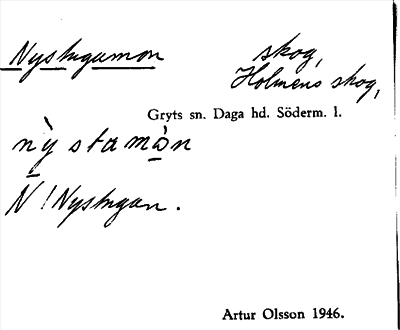 Nystugumon skog,
Holmens skog,
Gryts sn. Daga hd. Söderm. l.
nỳ stamà̱n
N! Nystugan.
Artur Olsson 1946.